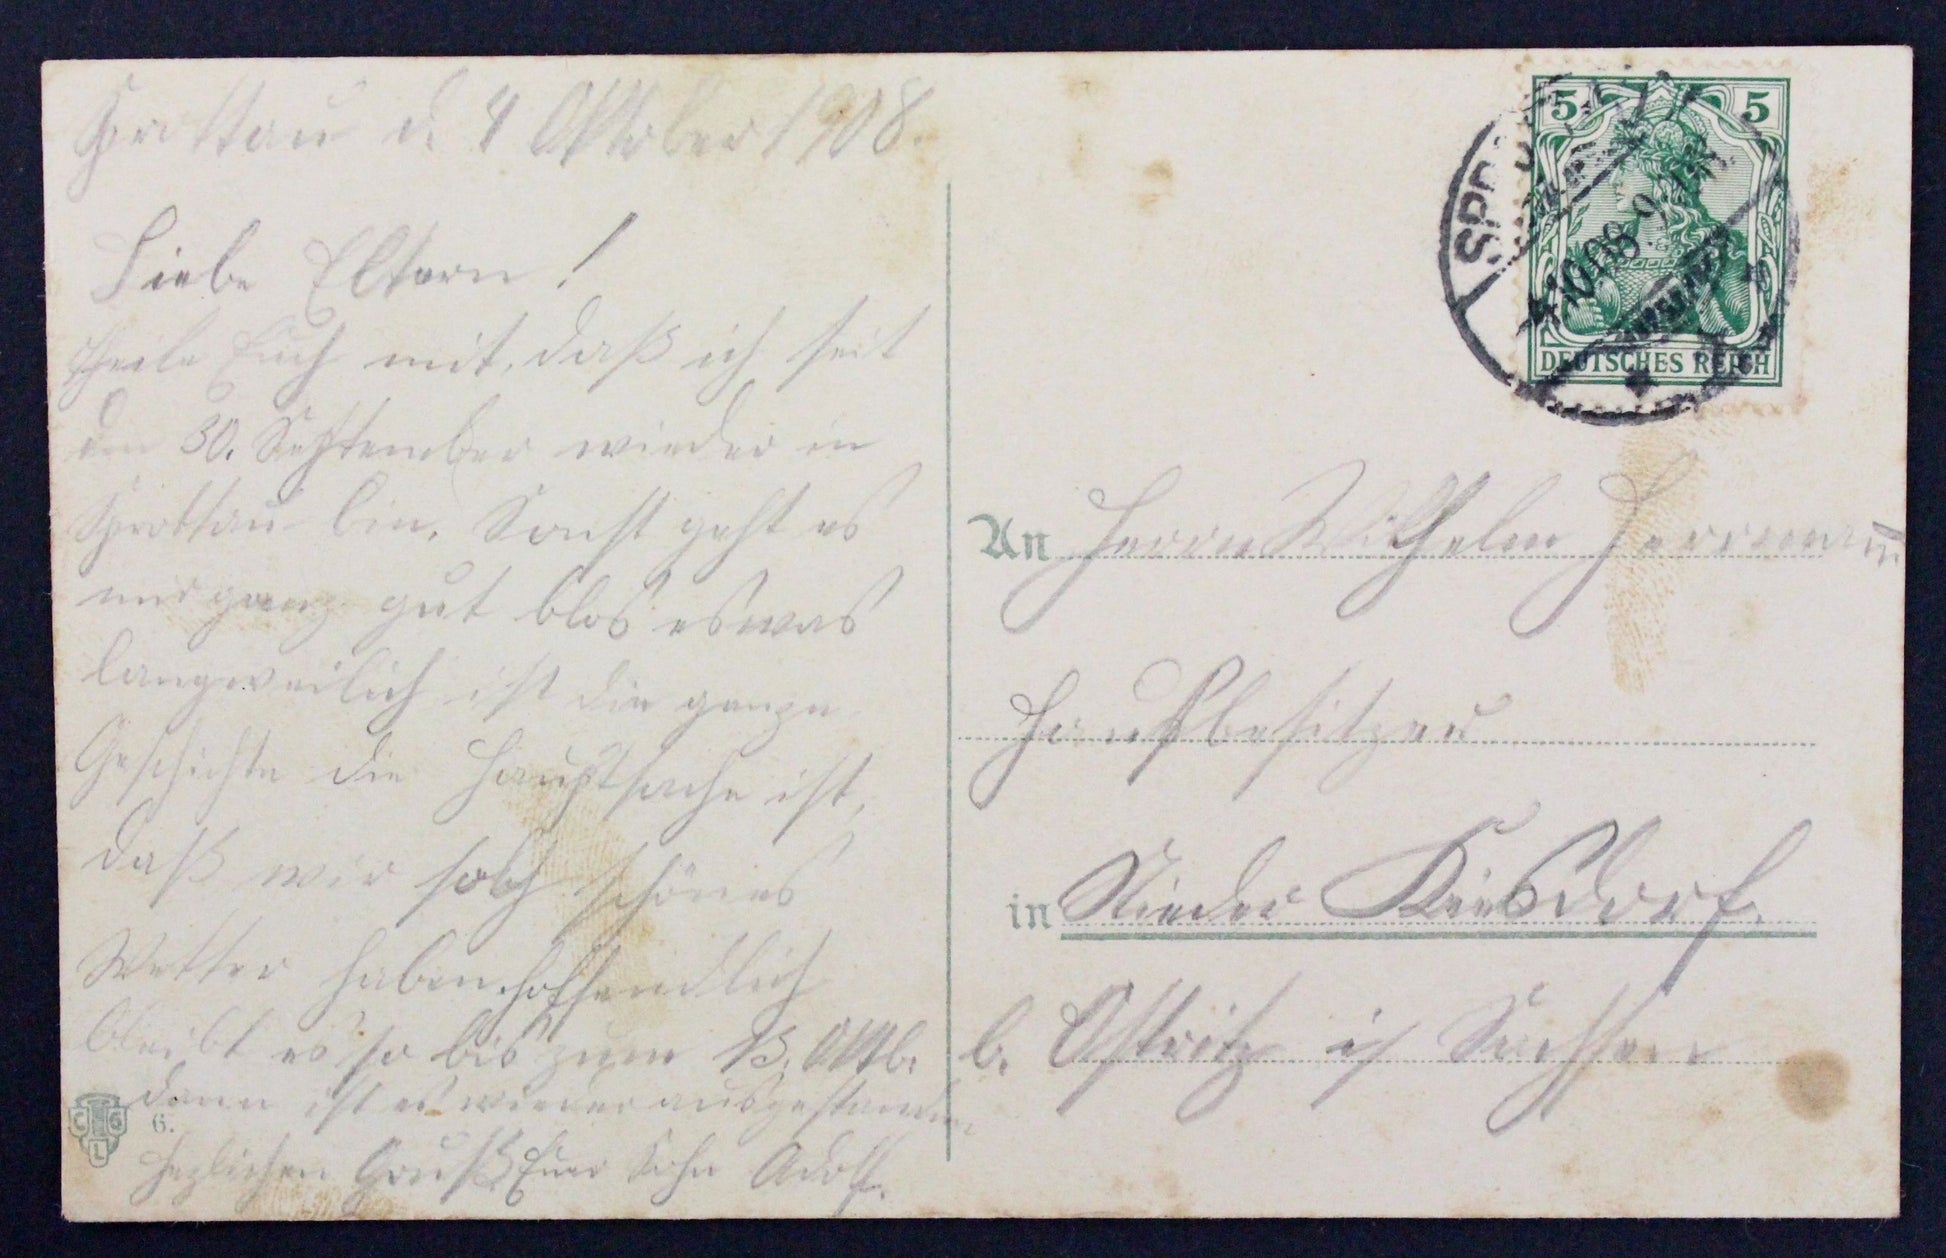 Sprottau d. 4 Oktober 1908.
Liebe Eltern!
theile Euch mit, daß ich seit
den 30. September wieder in
Sprottau bin. Sonst geht es
mir ganz gut blos etwas
langweilich ist die ganze
Geschichte die Hauptsache ist,
daß wir solch schönes
Wetter haben hoffendlich
bleibt es so bis zum 13. Oktb.
dann ist es wieder ausgestanden
Herzlichen Gruß Euer Sohn Adolf.
C G L
6.
5 5
DEUTSCHES REICH
4.10.08
An Herrn Wilhelm Herrmann
Hausbesitzer
in Nieder
b. Ostritz i/ Sachsen